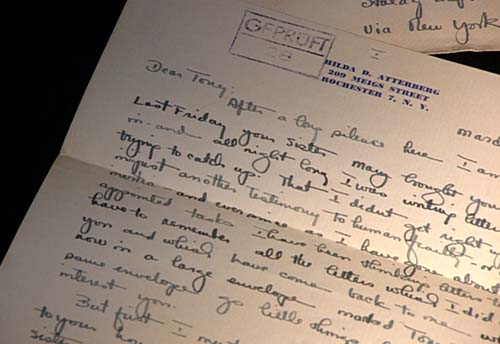 via New York
GEPRÜFT
28
I
HILDA D. ATTERBERG
209 MEIGS STREET
ROCHESTER 7, N. Y.
Dear Tony: After a long silence here I am
Last Friday your sister Mary brought you
in and all night long I was writing letter
trying to catch up. That I didnt get right
another testimony to human frailty
and I have gone about
appointed tasks I have been thinking letters
have to remember all the letters which I did
you and which have come back to me
now in a large envelope marked Tony
same envelope go little things
interest you.
But first I must
to yours